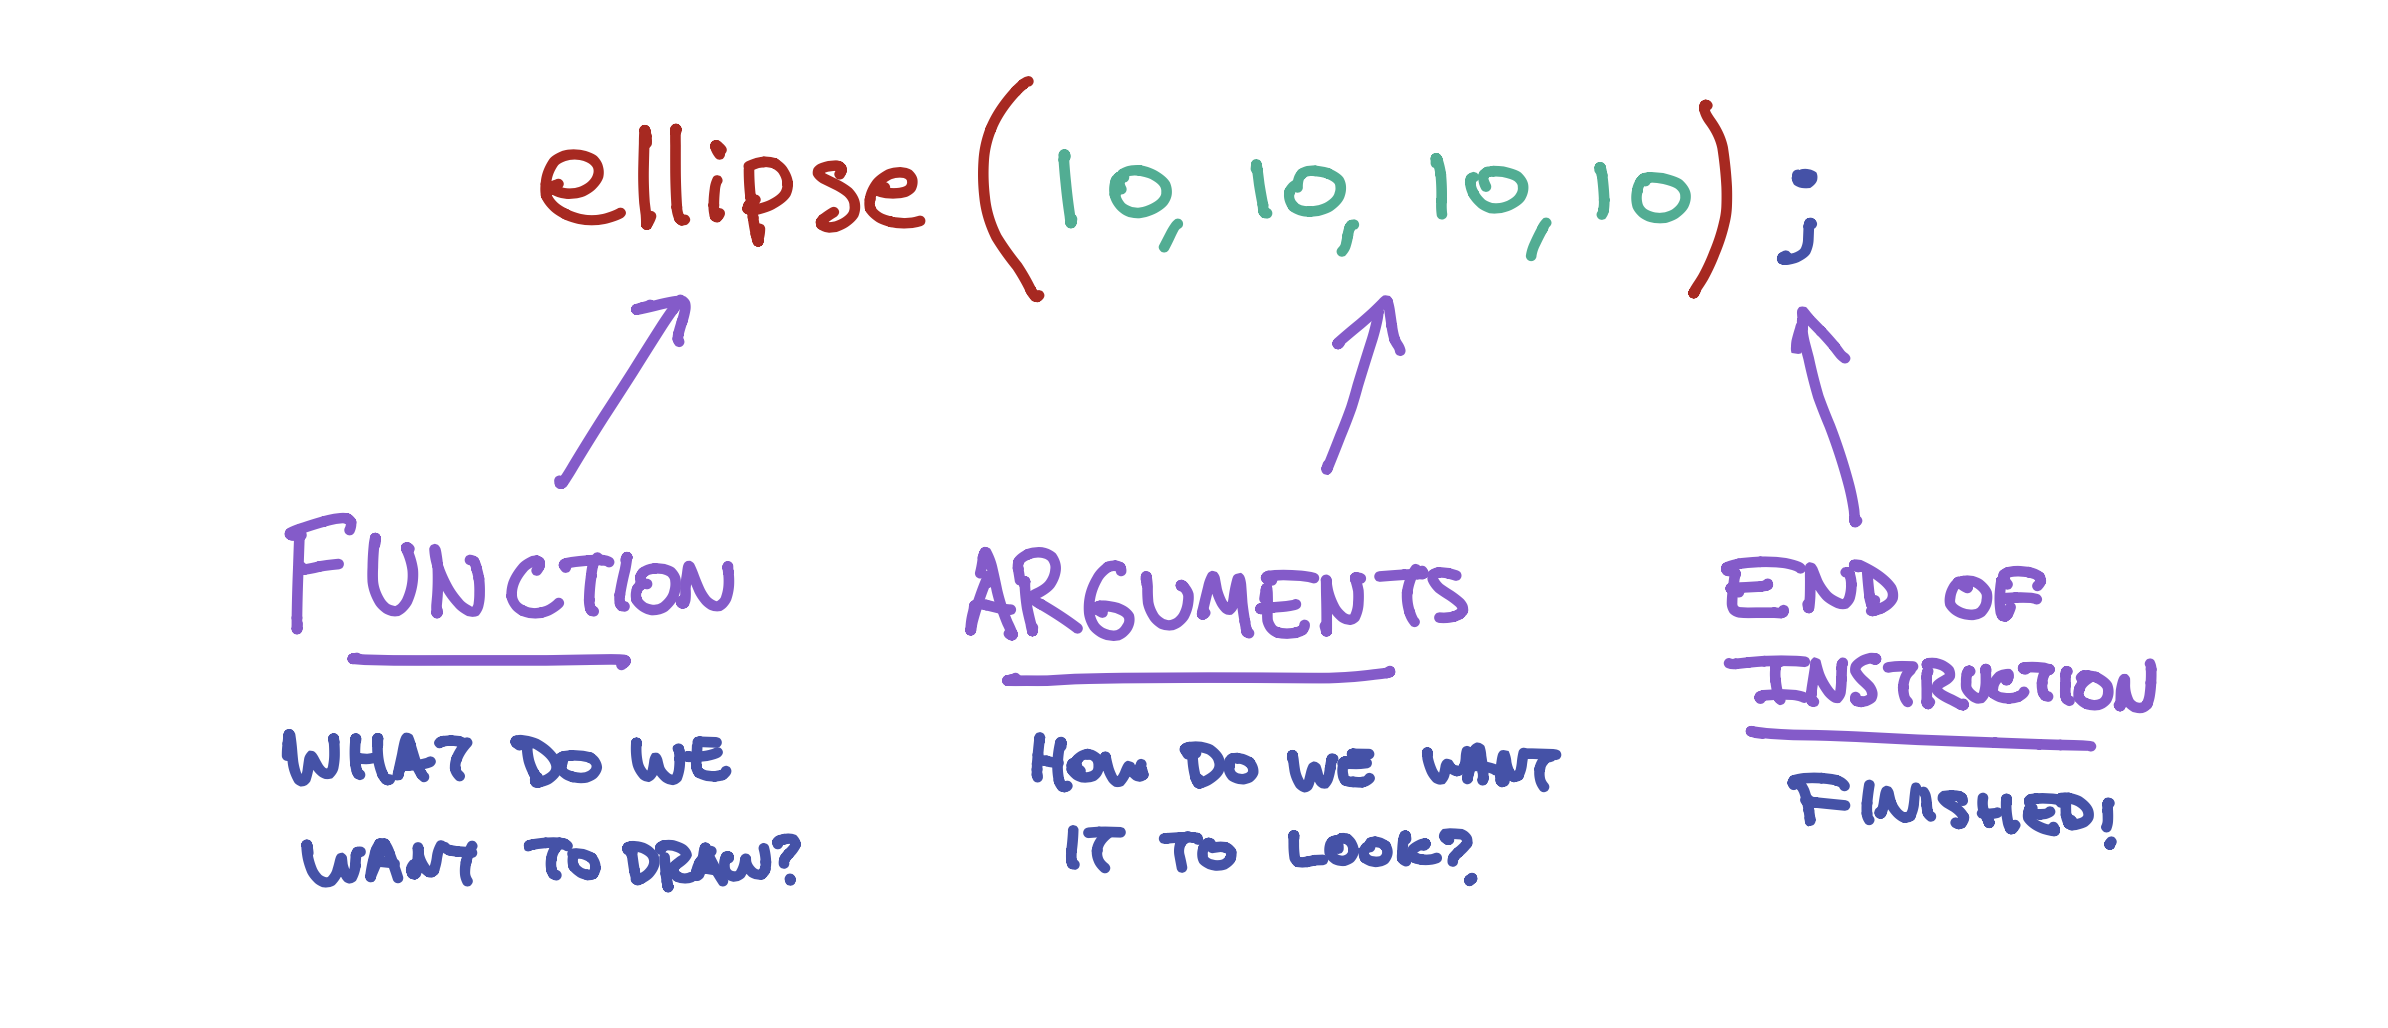 ellipse (10, 10, 10, 10) ;
FUNCTION
WHAT DO WE
WANT TO DRAW?
ARGUMENTS
HOW DO WE WANT
IT TO LOOK?
END OF
INSTRUCTION
FINISHED!